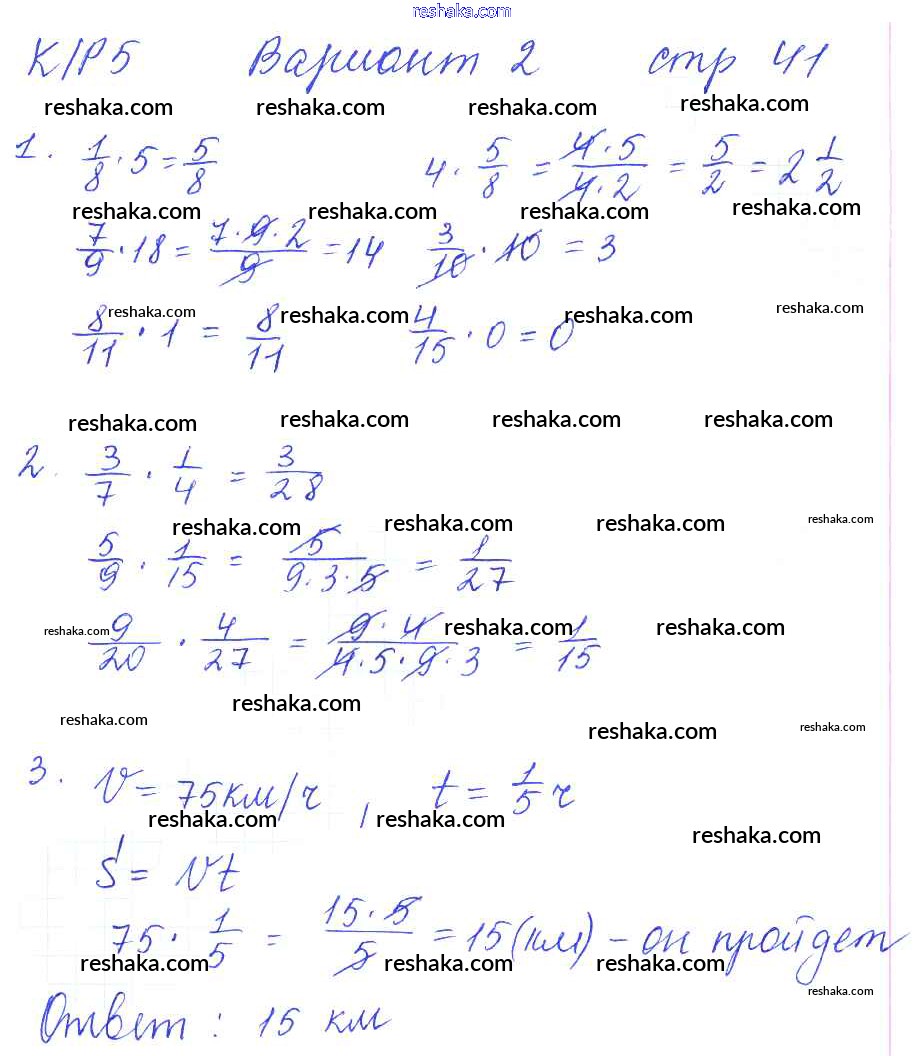 reshaka.com
К/Р 5 Вариант 2 стр 41
reshaka.com reshaka.com reshaka.com reshaka.com
1. 1/8 · 5 = 5/8 4 · 5/8 = 4·5/4·2 = 5/2 = 2 1/2
reshaka.com reshaka.com reshaka.com reshaka.com
7/9 · 18 = 7·9·2/9 = 14 3/10 · 10 = 3
reshaka.com reshaka.com reshaka.com reshaka.com
8/11 · 1 = 8/11 4/15 · 0 = 0
reshaka.com reshaka.com reshaka.com reshaka.com
2. 3/7 · 1/4 = 3/28
reshaka.com reshaka.com reshaka.com reshaka.com
5/9 · 1/15 = 5/9·3·5 = 1/27
reshaka.com reshaka.com reshaka.com
9/20 · 4/27 = 9·4/4·5·9·3 = 1/15
reshaka.com reshaka.com reshaka.com reshaka.com
3. V = 75 км/ч, t = 1/5 ч
reshaka.com reshaka.com reshaka.com
S = Vt
75 · 1/5 = 15·5/5 = 15 (км) - он пройдет
reshaka.com reshaka.com reshaka.com reshaka.com
Ответ: 15 км